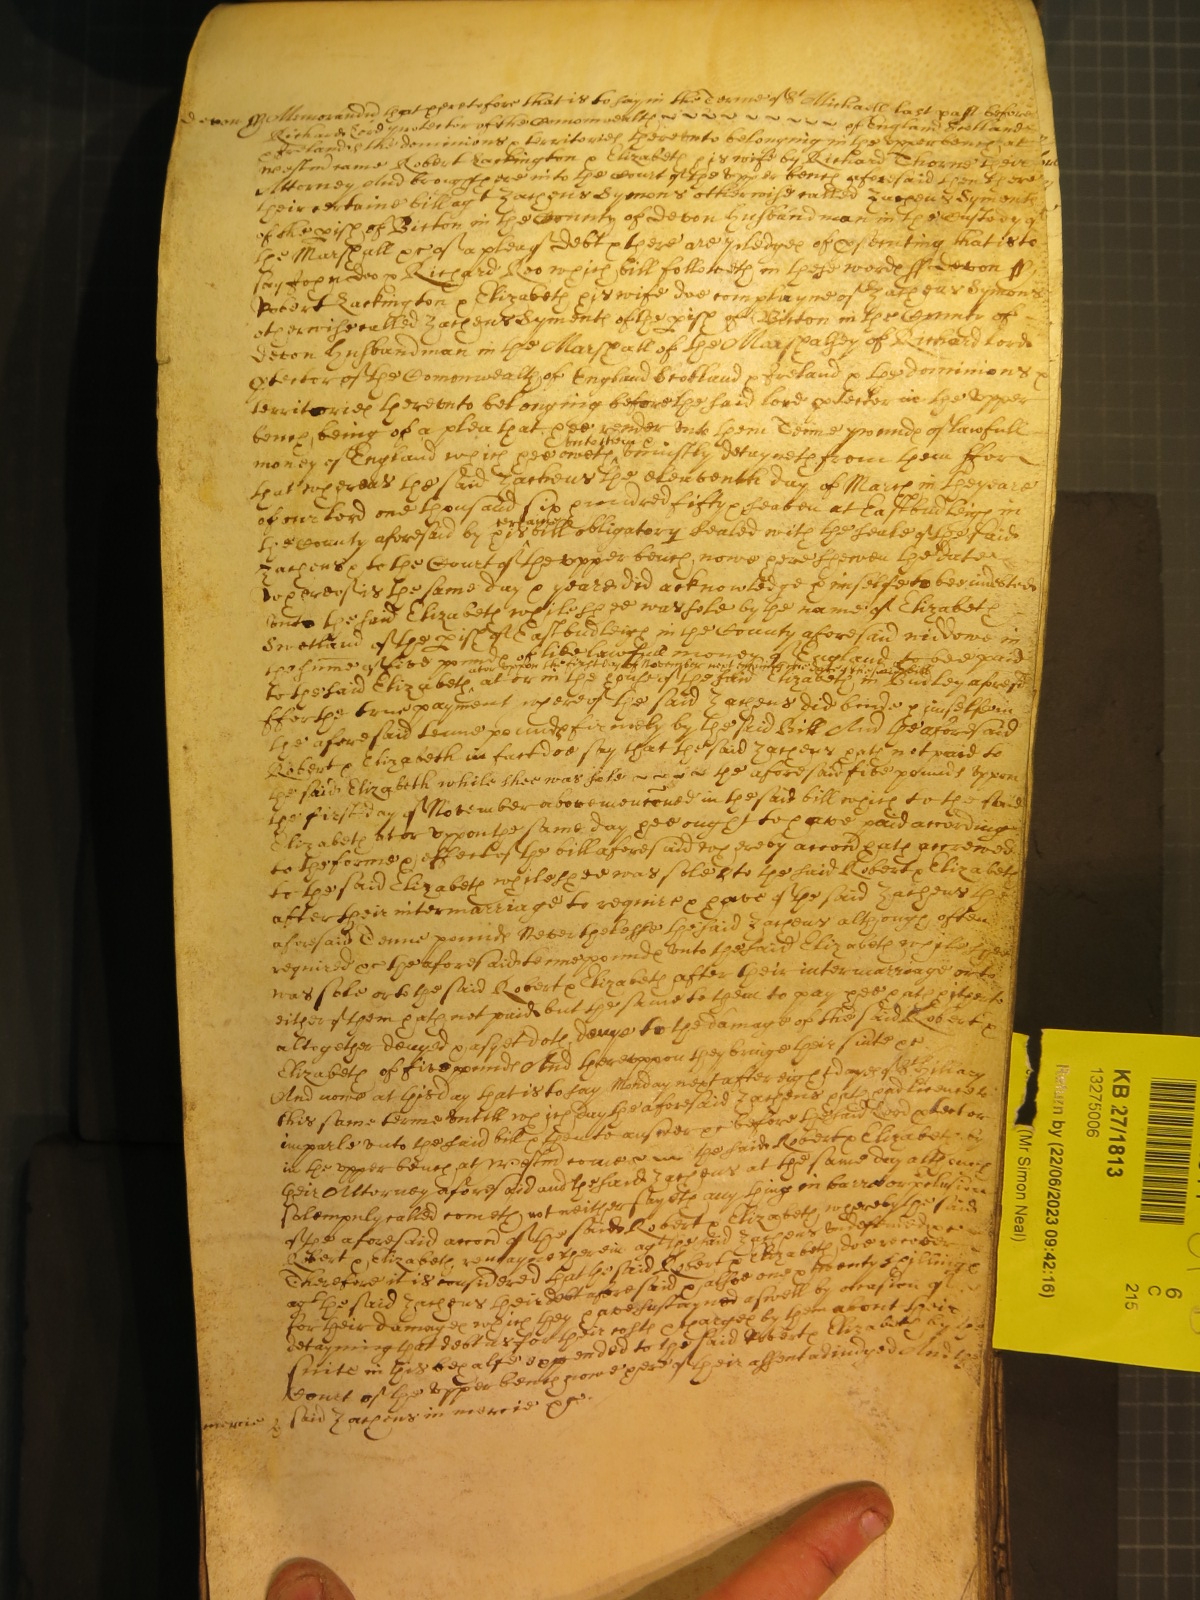 Devon ss Memorandum that heretofore that is to say in the Terme of St Michaell last past before
Richard Lord protector of the Comonwealth of England Scotland
& Ireland & the dominions & territories thereunto belonging in the upper bench at
Westm came Robert Lackington & Elizabeth his wife by Richard Thorne their
Attorney And brought here into the Court of the upper bench aforesaid then there
their certaine bill agt Zacheus Symons otherwise called Zacheus Syments
of the pish of Bicton in the County of Devon husbandman in the Custody of
the Marshall &c of a plea of debt & there are pledges of prosecuting that is to
say John Doo & Richard Roo which bill followeth in these words ss Devon ss
Robert Lackington & Elizabeth his wife doe complayne of Zacheus Symons
otherwise called Zacheus Syments of the pish of Bicton in the County of
Devon husbandman in the Marshall of the Marshalsey of Richard Lord
ptector of the Comonwealth of England Scotland & Ireland & the dominions &
territories thereunto belonging before the said lord ptector in the upper
bench being of a plea that hee render unto them Tenne pounds of lawfull
money of England which hee oweth unto them & uniustly detayneth from them ffor
that whereas the said Zacheus the eleaventh day of March in the yeare
of our lord one thousand six hundred fifty & seaven at East budleigh in
the County aforesaid by his certaine bill obligatory sealed with the seale of the said
Zacheus & to the Court of the upper bench nowe here shewen the date
whereof is the same day & yeare did acknowledge himselfe to bee indebted
unto the said Elizabeth while shee was sole by the name of Elizabeth
Sweetland of the pish of East budleigh in the County aforesaid widdowe in
the sume of five pounds of like lawfull money of England to bee paid
to the said Elizabeth att or uppon the first day of November next at or in the house of the said Elizabeth in Budley aforesd
ffor the true payment whereof the said Zacheus did binde himselfe in
the aforesaid tenne pounds firmely by the said bill And the aforesaid
Robert & Elizabeth in fact doe say that the said Zacheus hath not paid to
the said Elizabeth while shee was sole the aforesaid five pounds uppon
the first day of November abovementioned in the said bill which to the said
Elizabeth at or uppon the same day hee ought to have paid according
to the forme & effect of the bill aforesaid whereby accon hath accrewed
to the said Elizabeth while shee was sole & to the said Robert & Elizabeth
after their intermarriage to require & have of the said Zacheus the
aforesaid Tenne pounds Neverthelesse the said Zacheus although often
required &c the aforesaid tenne pounds unto the said Elizabeth while shee
was sole or to the said Robert & Elizabeth after their intermarriage or to
either of them hath not paid but the same to them to pay hee hath hitherto
altogether denyed & as yet doth denye to the damage of the said Robert &
Elizabeth of five pounds And thereuppon they bringe their suite &c
And nowe at this day that is to say Monday next after eight dayes of St Hillary
this same terme untill which day the aforesaid Zacheus hath had licence to
imparle unto the said bill & then to answer &c before the said Lord ptector
in the upper bench at Westm come the said Robert & Elizabeth by
their Attorney aforesaid and the said Zacheus at the same day although
solempnly called cometh not neither sayeth any thing in barr or pclusion
of the aforesaid accon of the said Robert & Elizabeth whereby the said
Robert & Elizabeth remayne therein agt the said Zacheus undefended &c
Therefore it is considered that the said Robert & Elizabeth doe recover
agt the said Zacheus their debt aforesaid & alsoe one & twenty shillings
for their damages which they have sustayned aswell by occasion of
detayning that debt as for their costs & charges by them about their
suite in this behalfe expended to the said Robert & Elizabeth by the
Court of the upper bench nowe here of their assent adiudged And the
mercie said Zacheus in mercie &c.
KB 27/1813
13275006
Return by (22/06/2023 09:42:16)
(Mr Simon Neal)
6
C
215